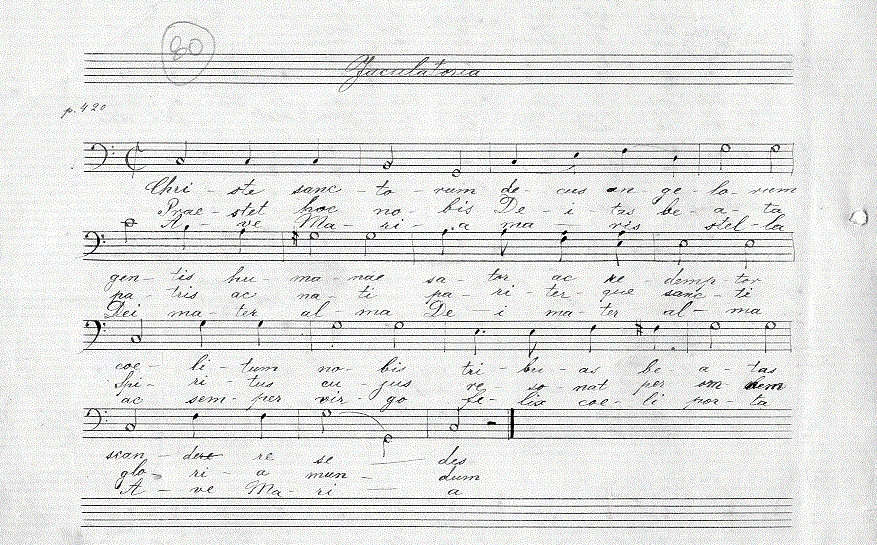 80
Jaculatoria
p. 420
Chri - ste sanc - to - rum de - cus an - ge - lo - rum
Prae - stet hoc no - bis De - i - tas be - a - ta
A - ve Ma - ri - a ma - ris stel - la
gen - tis hu - ma - nae sa - tor ac re - demp tor
pa - tris ac na - ti pa - ri - ter - que sanc - ti
Dei ma - ter al - ma De - i ma - ter al - ma
coe - li - tum no - bis tri - bu - as be - a - tas
Spi - ri - tus cu - jus re - so - nat per om
ac sem - per vir - go fe - lix coe - li por - ta
scan - re se - des
glo - ri - a mun - dum
A - ve Ma - ri - a